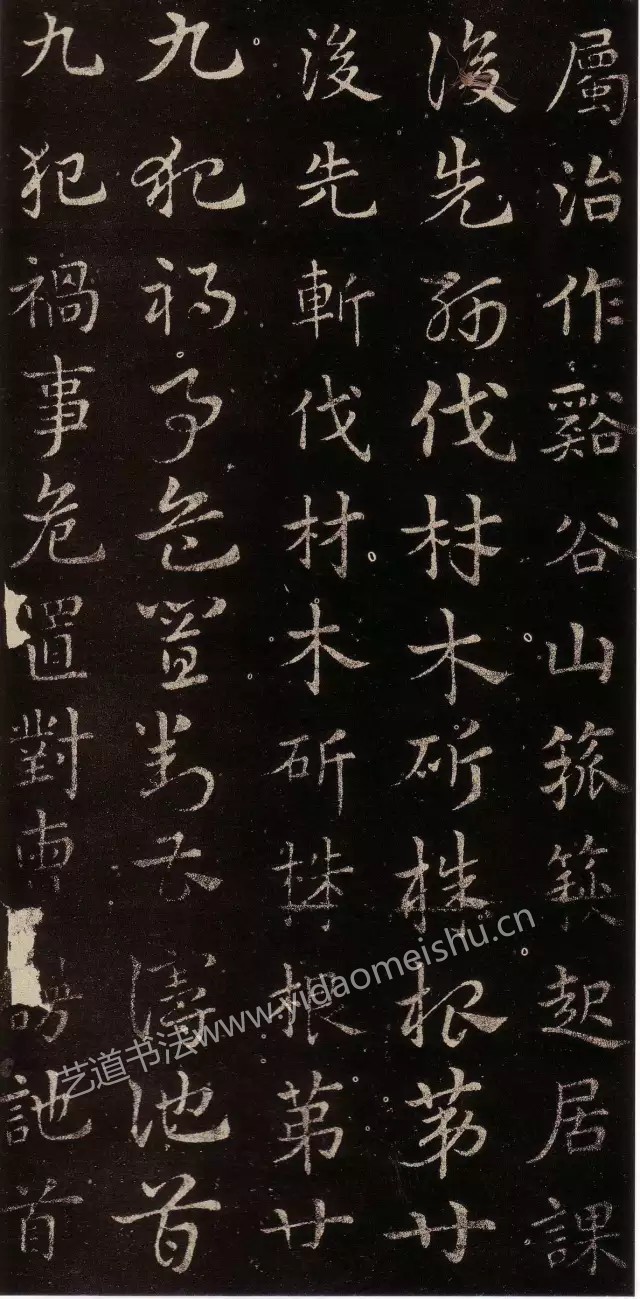 屬治作谿谷山箛起居課
後先斬伐材木斫株根第廿
後先斬伐材木斫株根第廿
九犯禍事危置對曹謗訑首
九犯禍事危置對曹謗訑首
艺道书法www.yidaomeishu.cn